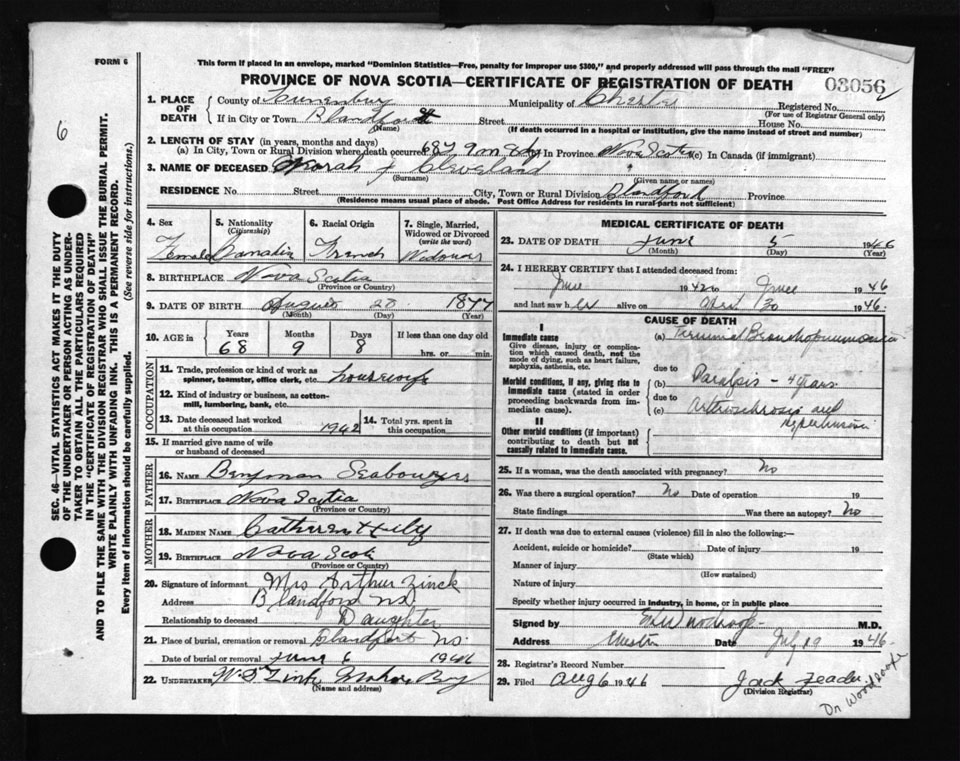 FORM 6
This form if placed in an envelope, marked "Dominion Statistics—Free, penalty for improper use $300," and properly addressed will pass through the mail "FREE"
PROVINCE OF NOVA SCOTIA—CERTIFICATE OF REGISTRATION OF DEATH
03056
6
SEC. 46—VITAL STATISTICS ACT MAKES IT THE DUTY
OF THE UNDERTAKER OR PERSON ACTING AS UNDER-
TAKER TO OBTAIN ALL THE PARTICULARS REQUIRED
IN THE "CERTIFICATE OF REGISTRATION OF DEATH"
AND TO FILE THE SAME WITH THE DIVISION REGISTRAR WHO SHALL ISSUE THE BURIAL PERMIT.
WRITE PLAINLY WITH UNFADING INK. THIS IS A PERMANENT RECORD.
Every item of information should be carefully supplied. (See reverse side for instructions.)
1. PLACE OF DEATH
County of Lunenburg Municipality of Chester Registered No.
(For use of Registrar General only)
If in City or Town Blandford Street House No.
(Name) (If death occurred in a hospital or institution, give name instead of street and number)
2. LENGTH OF STAY (in years, months and days)
(a) In City, Town or Rural Division where death occurred 68y 9m 8dy (b) In Province Nova Scotia (c) In Canada (if immigrant)
3. NAME OF DECEASED Norah J Cleveland
(Surname) (Given name or names)
RESIDENCE No. Street City, Town or Rural Division Blandford Province
(Residence means usual place of abode. Post Office Address for residents in rural parts not sufficient)
4. Sex
Female
5. Nationality
(Citizenship)
Canadin
6. Racial Origin
French
7. Single, Married,
Widowed or Divorced
(write the word)
Widower
8. BIRTHPLACE Nova Scotia
(Province or Country)
9. DATE OF BIRTH August 28 1877
(Month) (Day) (Year)
10. AGE in
Years Months Days If less than one day old
68 9 8 hrs. or min.
OCCUPATION
11. Trade, profession or kind of work as
spinner, teamster, office clerk, etc. housewife
12. Kind of industry or business, as cotton-
mill, lumbering, bank, etc.
13. Date deceased last worked
at this occupation 1942
14. Total yrs. spent in
this occupation
15. If married give name of wife
or husband of deceased
FATHER
16. NAME Benjman Seaboyers
17. BIRTHPLACE Nova Scotia
(Province or Country)
MOTHER
18. MAIDEN NAME Cathrren
19. BIRTHPLACE Nova Scoti
(Province or Country)
20. Signature of informant Mrs Arthur Zinck
Address Blandford NS
Relationship to deceased Daughter
21. Place of burial, cremation or removal Blandfort NS.
Date of burial or removal June 6 1946
22. UNDERTAKER Mahone Bay
(Name and address)
MEDICAL CERTIFICATE OF DEATH
23. DATE OF DEATH June 5 1946
(Month) (Day) (Year)
24. I HEREBY CERTIFY that I attended deceased from:
June 1942 to June 1946
and last saw her alive on 30 1946.
CAUSE OF DEATH
I
Immediate cause
Give disease, injury or complica-
tion which caused death, not the
mode of dying, such as heart failure,
asphyxia, asthenia, etc.
Morbid conditions, if any, giving rise to
immediate cause (stated in order
proceeding backwards from im-
mediate cause).
II
Other morbid conditions (if important)
contributing to death but not
causally related to immediate cause.
(a) Terminal Bronchopneumonia
due to
(b) Paralysis - 4 years
due to
(c) and
Hypertension
25. If a woman, was the death associated with pregnancy? No
26. Was there a surgical operation? No Date of operation 19
State findings Was there an autopsy? No
27. If death was due to external causes (violence) fill in also the following:—
Accident, suicide or homicide? Date of injury 19
(State which)
Manner of injury
(How sustained)
Nature of injury
Specify whether injury occurred in industry, in home, or in public place
Signed by M.D.
Address Chester Date July 19 1946
28. Registrar's Record Number
29. Filed Aug 6 1946 Jack Zeader
(Division Registrar)
Dr Woodroofe